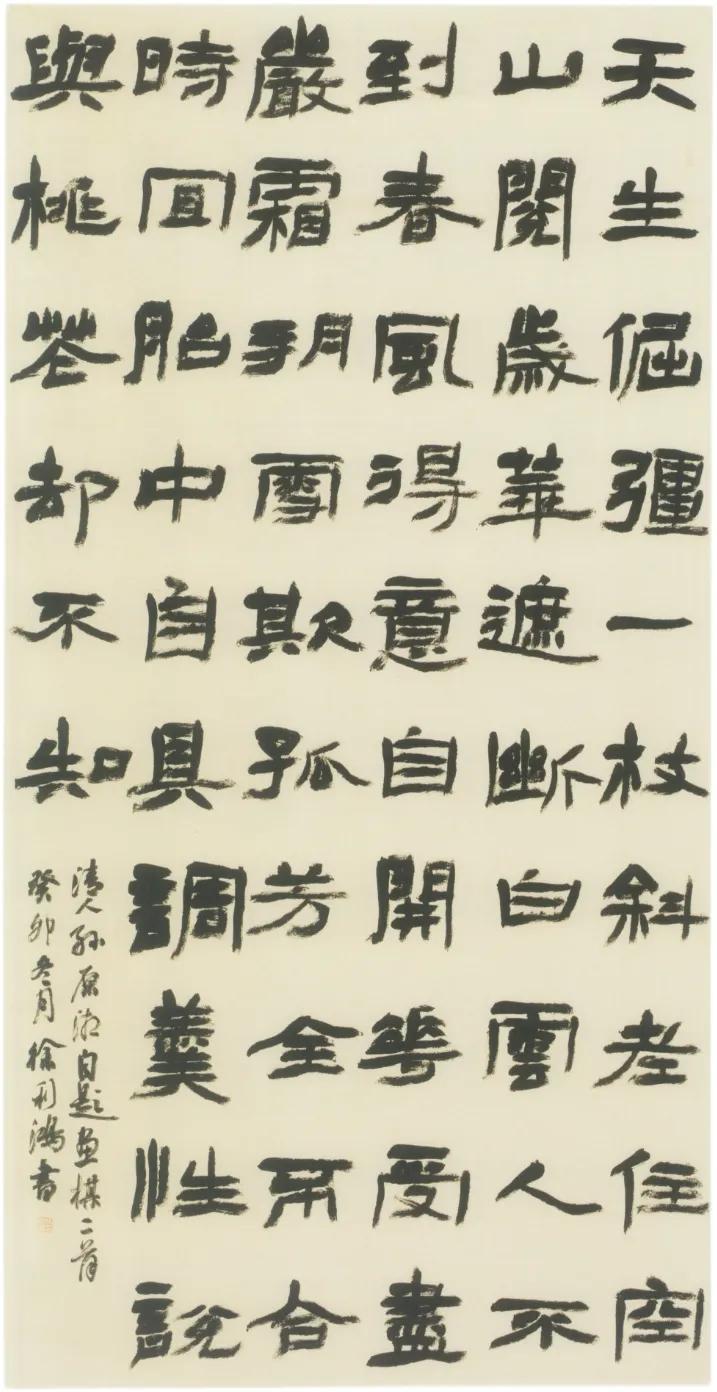 天生倔彊一枝斜老住空
山閱歲華遮斷白雲人不
到春風得意自開花受盡
嚴霜朔雪欺孤芳全不合
時宜胎中自具調羹性說
與桃花却不知
清人孫原湘自題畫楳二首
癸卯冬月徐利鴻書